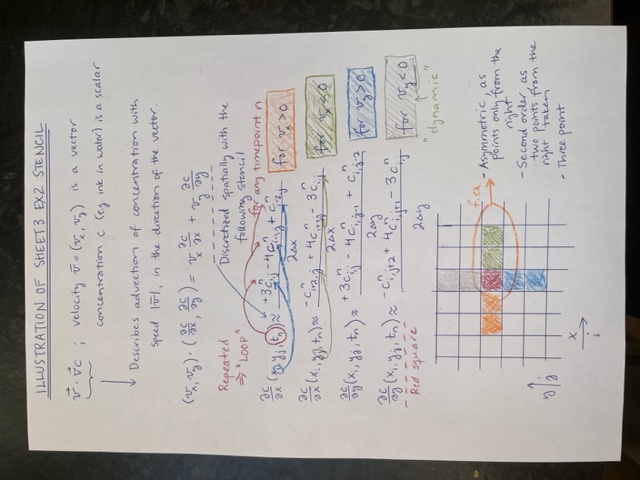 ILLUSTRATION OF SHEET3 EX2 STENCIL
v⃗ · ∇⃗c ; velocity v̄ = (vₓ, v_y) is a vector
concentration c (e.g ink in water) is a scalar
Describes advection of concentration with
speed |v̄|, in the direction of the vector.
(vₓ, v_y) · (∂c/∂x, ∂c/∂y) = vₓ ∂c/∂x + v_y ∂c/∂y
Repeated
⇒ "LOOP"
Discretized spatially with the
following stencil
for any timepoint n
∂c/∂x (xᵢ, yⱼ, tₙ) ≈ (+3cⁿᵢ,ⱼ - 4cⁿᵢ₋₁,ⱼ + cⁿᵢ₋₂,ⱼ) / 2Δx for vₓ > 0
∂c/∂x (xᵢ, yⱼ, tₙ) ≈ (-cⁿᵢ₊₂,ⱼ + 4cⁿᵢ₊₁,ⱼ - 3cⁿᵢ,ⱼ) / 2Δx for vₓ < 0
∂c/∂y (xᵢ, yⱼ, tₙ) ≈ (+3cⁿᵢ,ⱼ - 4cⁿᵢ,ⱼ₋₁ + cⁿᵢ,ⱼ₋₂) / 2Δy for v_y > 0
∂c/∂y (xᵢ, yⱼ, tₙ) ≈ (-cⁿᵢ,ⱼ₊₂ + 4cⁿᵢ,ⱼ₊₁ - 3cⁿᵢ,ⱼ) / 2Δy for v_y < 0
Red square
"dynamic"
f.ex
- Asymmetric, as
points only from the
right
- Second order, as
two points from the
right taken
- Three point
y ↑ j
x
→
i